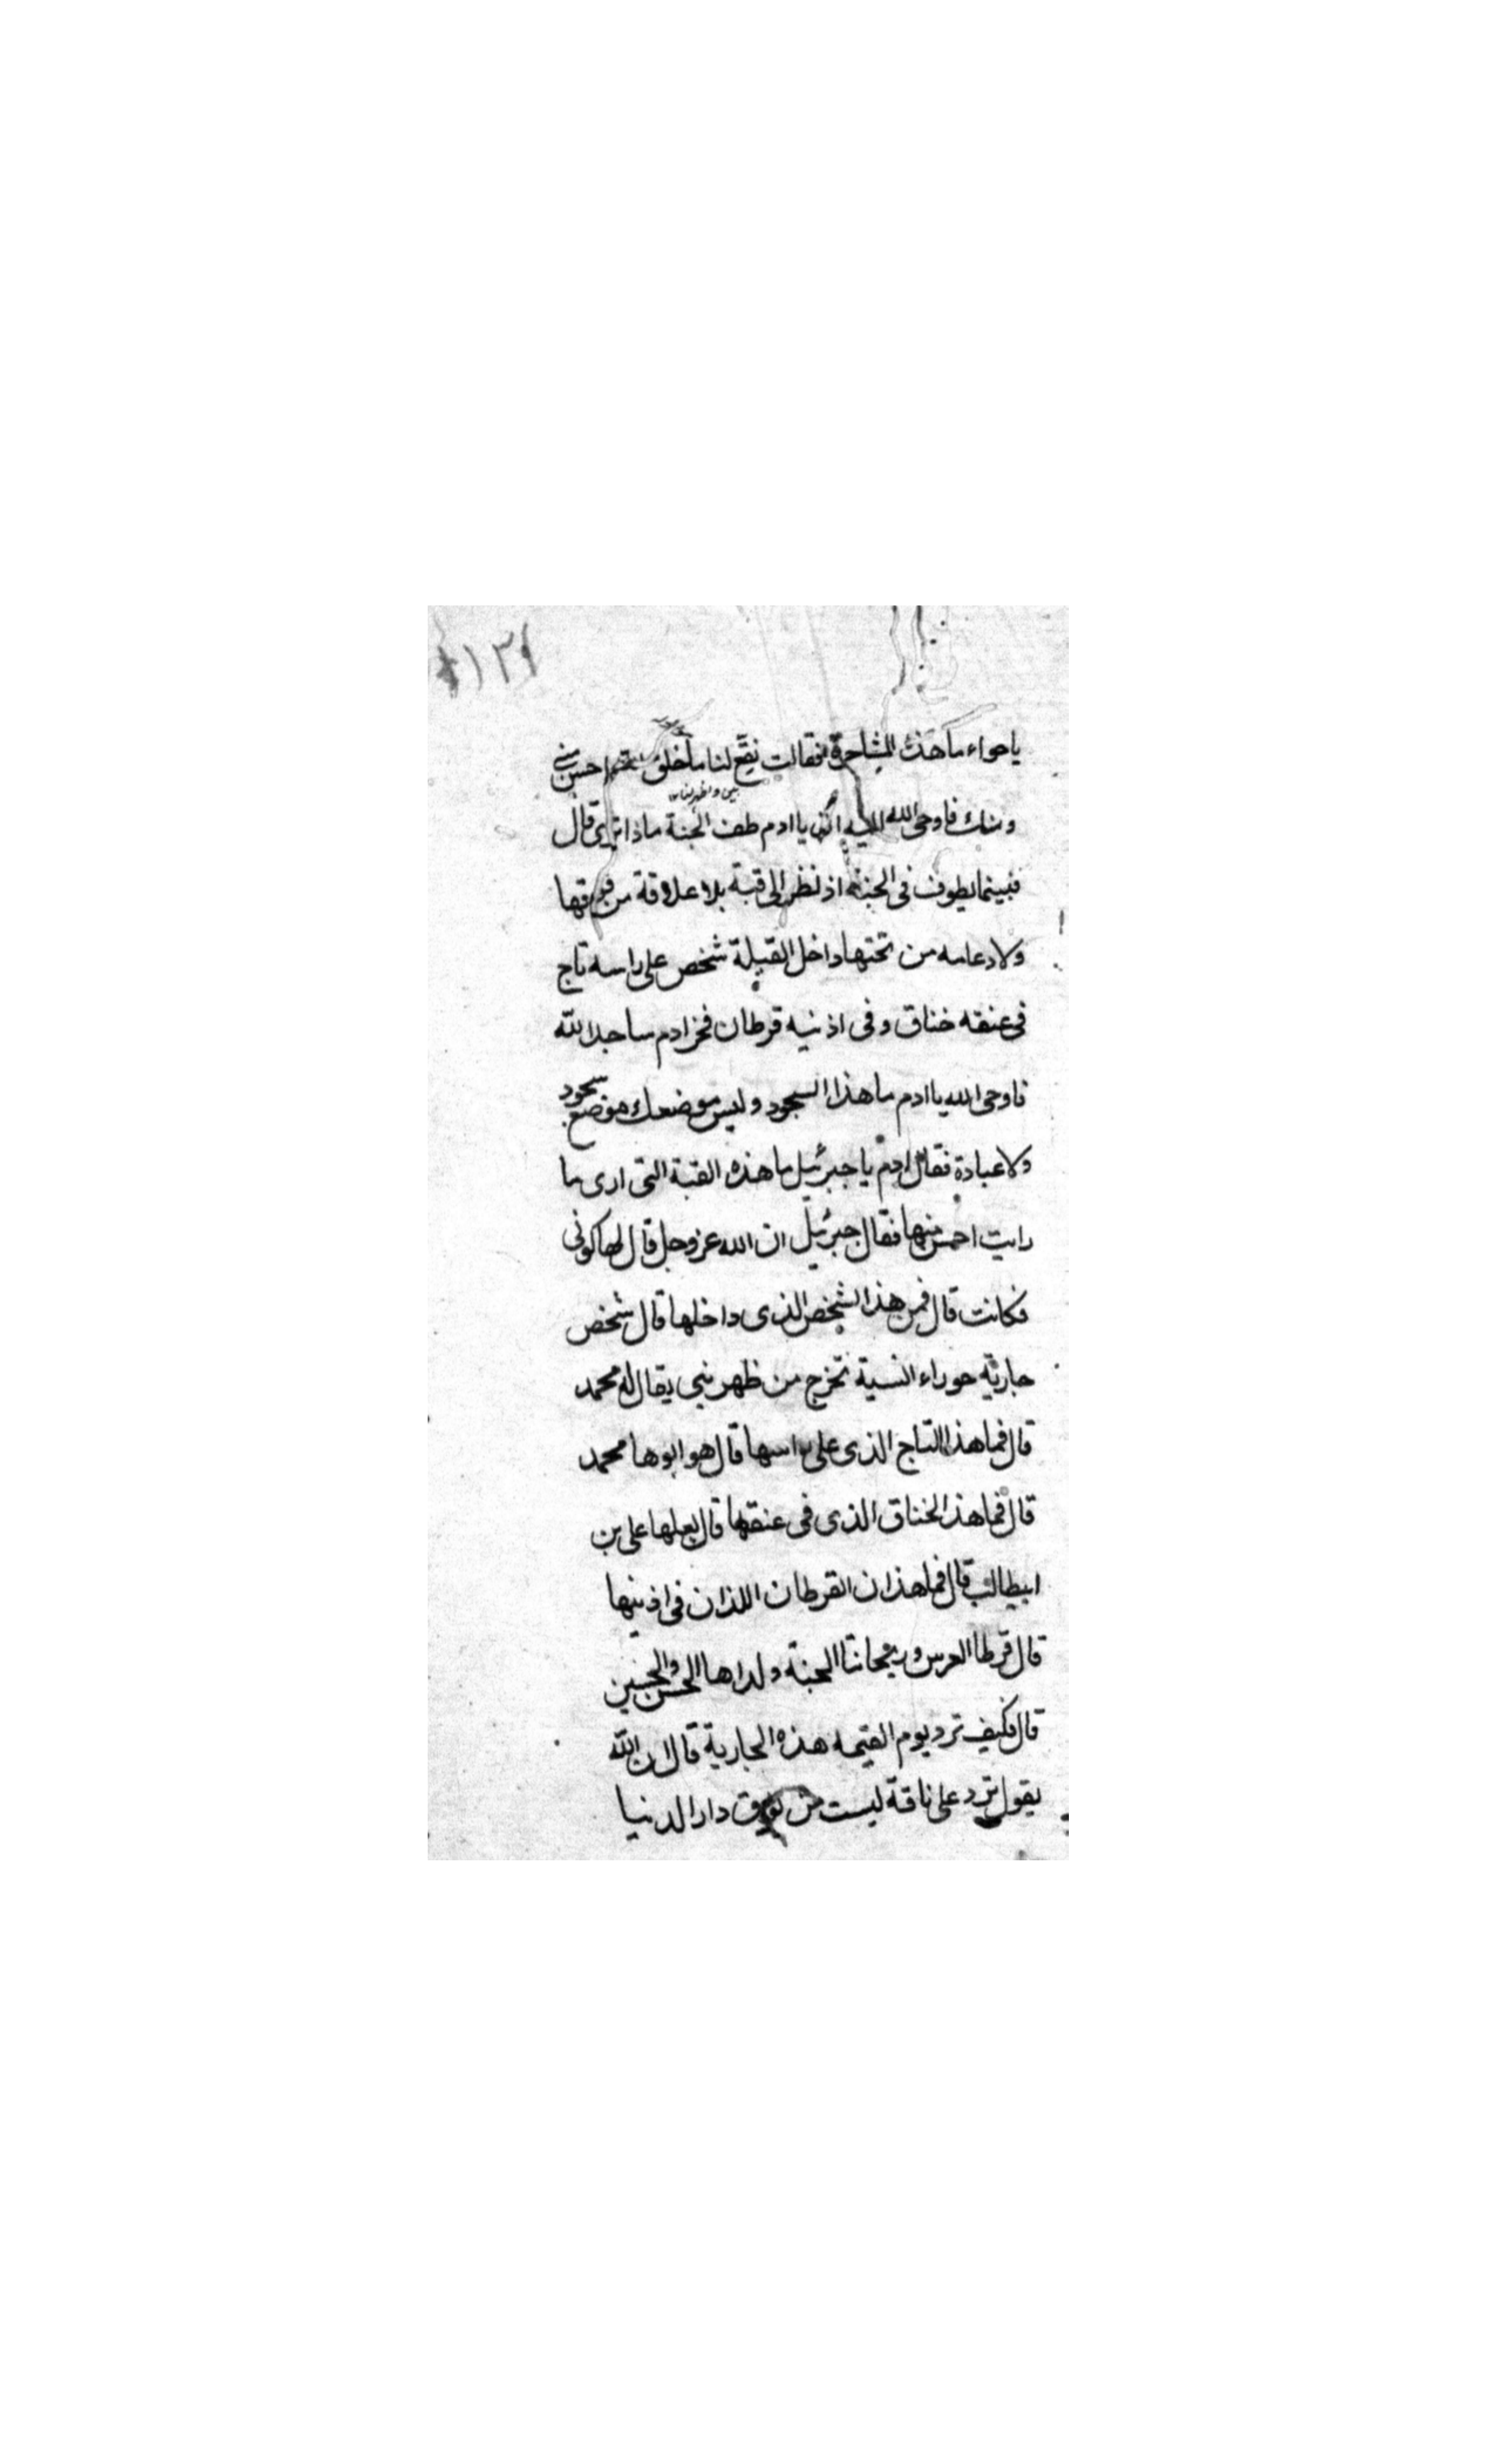 ١٣٩
يا حواء ما هذه المشاجرة فقالت يقع لنا ما خلق احسن مني
بين واظهر لنا
ومنك فاوحى الله اليه يا ادم طف الجنة ماذا ترى قال
فبينما يطوف فى الجنة اذ نظر الى قبة بلا علاقة من فوقها
ولا دعامه من تحتها داخل القبة شخص على راسه تاج
فى عنقه خناق وفى اذنيه قرطان فخر ادم ساجدا لله
فاوحى الله يا ادم ما هذا السجود وليس موضعك موضع سجود
ولا عبادة فقال ادم يا جبرئيل ما هذه القبة التى ارى ما
رايت احسن منها فقال جبرئيل ان الله عز وجل قال لها كونى
فكانت قال فمن هذا الشخص الذى داخلها قال شخص
جارية حوراء انسية تخرج من ظهر نبي يقال له محمد
قال فما هذا التاج الذى على راسها قال هو ابوها محمد
قال فما هذا الخناق الذى فى عنقها قال بعلها على بن
ابيطالب قال فما هذان القرطان اللذان فى اذنيها
قال قرطا العرس وريحانتا الجنة ولداها الحسن والحسين
قال فكيف ترد يوم القيمه هذه الجارية قال ان الله
يقول ترد على ناقة ليست من نوق دار الدنيا